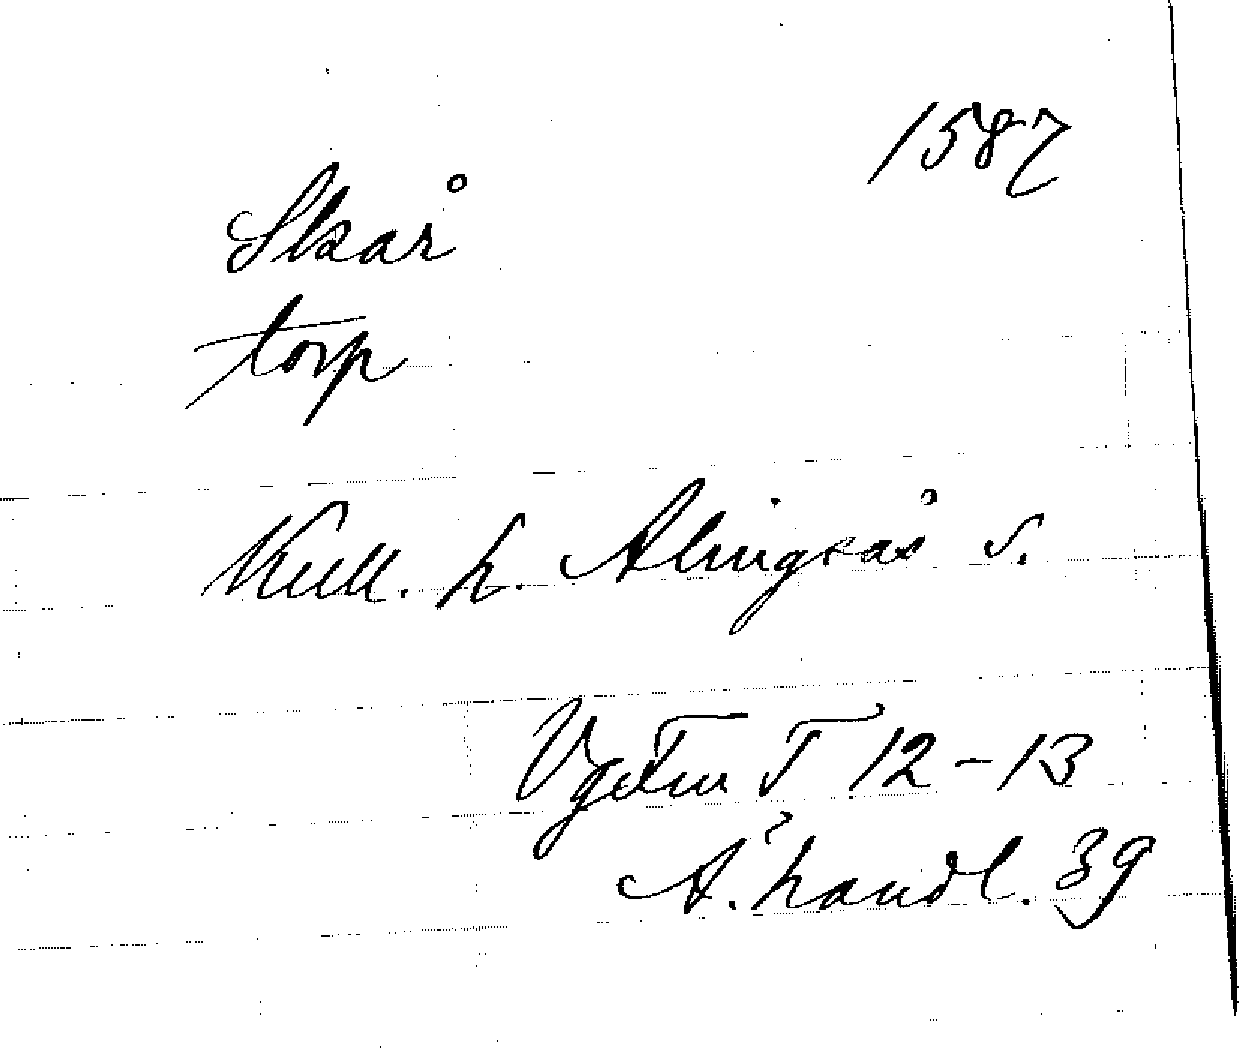 1587
Skår
torp
Kull. h. Alingsås s.
T 12-13
Ä. handl. 39